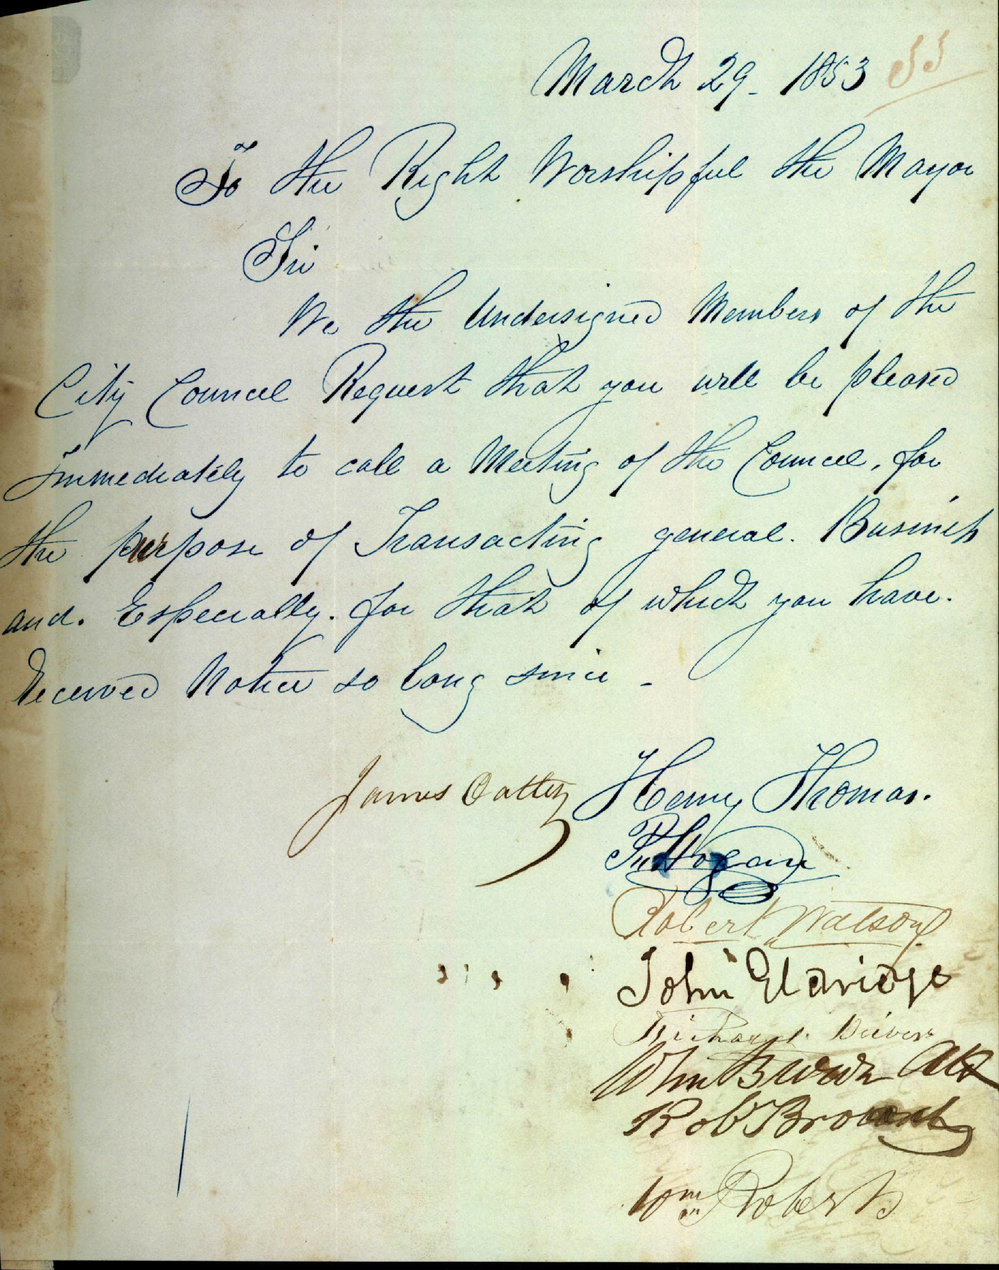 March 29 - 1853
To the Right Worshipful the Mayor
Sir
We the Undersigned Members of the
City Council Request that you will be pleased
immediately to call a Meeting of the Council, for
the purpose of Transacting general. Business
and. Especially. for that of which you have.
Received Notice so long since -
James Oatley Henry Thomas.
Hogan
Robert Watson
John Eldridge
Richard Driver
Wm Burdekin
Rob
Wm Roberts